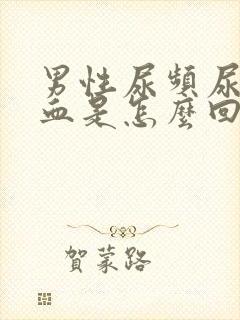 男性尿頻尿
血是怎麼回
賀蒙路